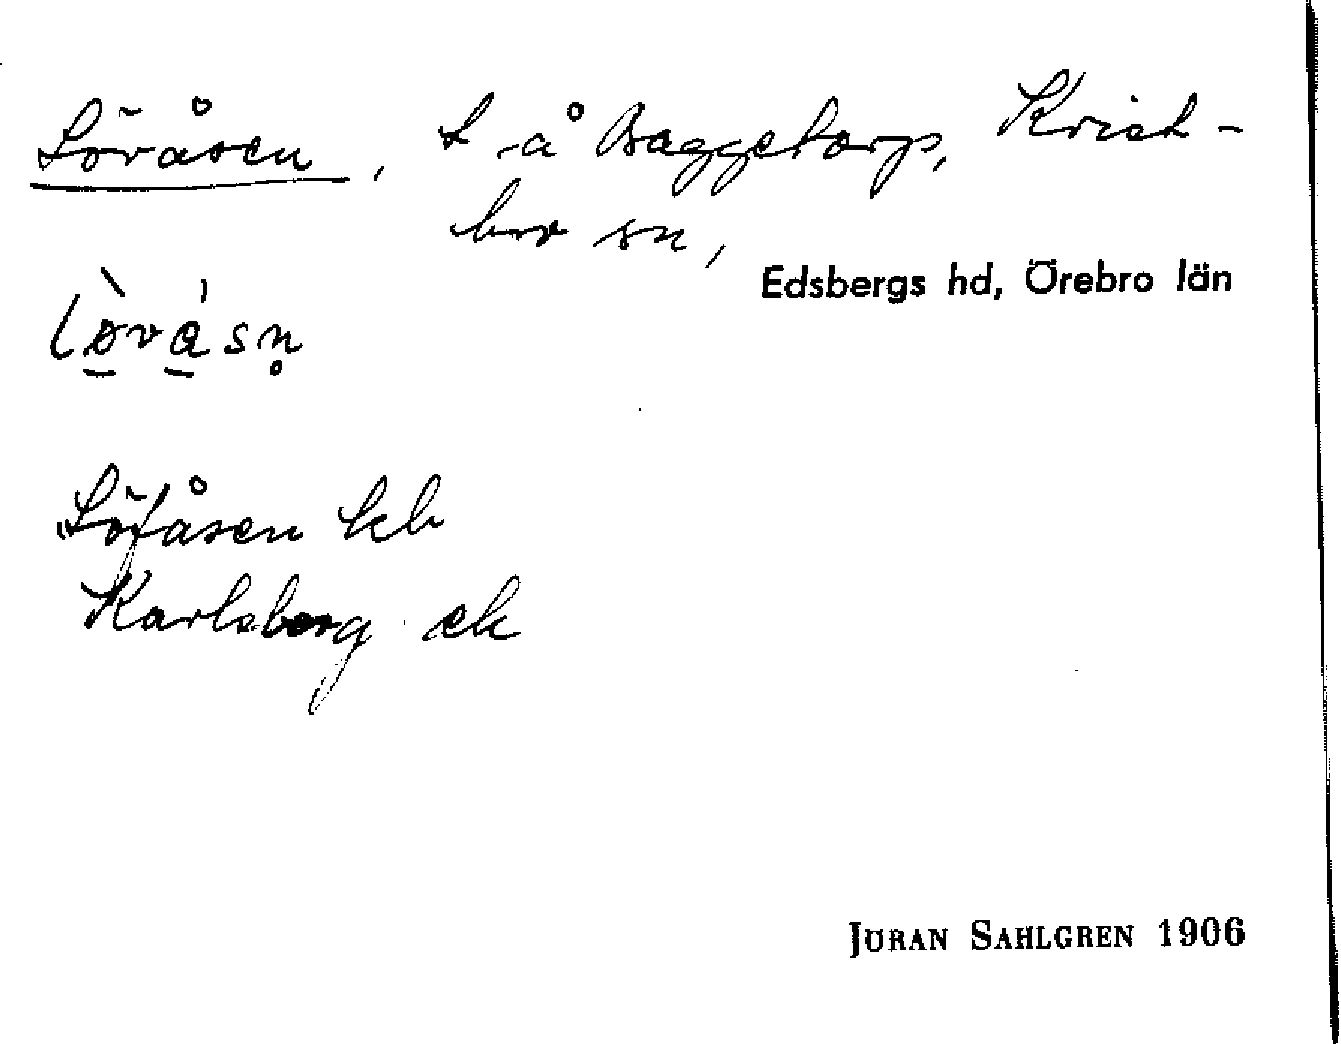 Lövåsen, t å Baggetorp, Krist-
bor sn,
Edsbergs hd, Örebro län
Löfåsen kb
Karlsberg ek
JÖRAN SAHLGREN 1906